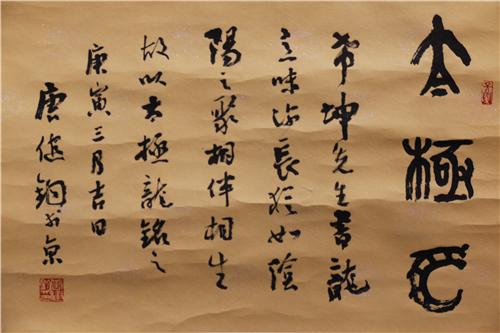 太極龍
希坤先生書龍
意味深長猶如陰
陽之聚相伴相生
故以太極龍銘之
庚寅三月吉日
唐健鈞於京